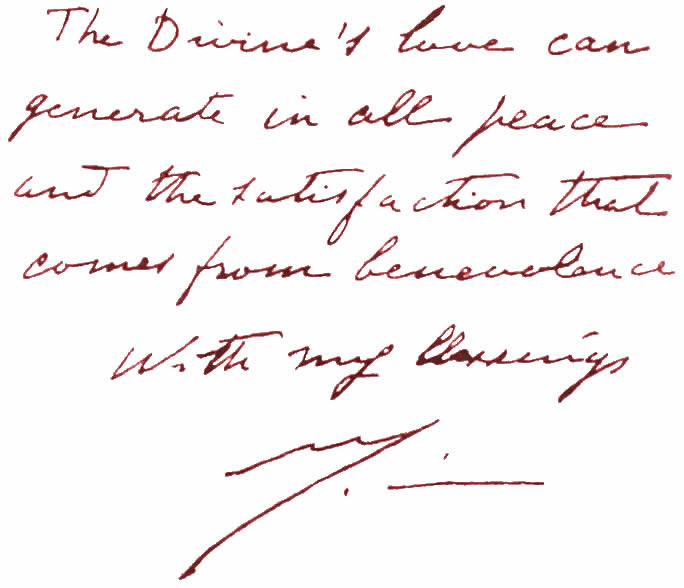 The Divine's love can
generate in all peace
and the satisfaction that
comes from benevolence
With my blessings